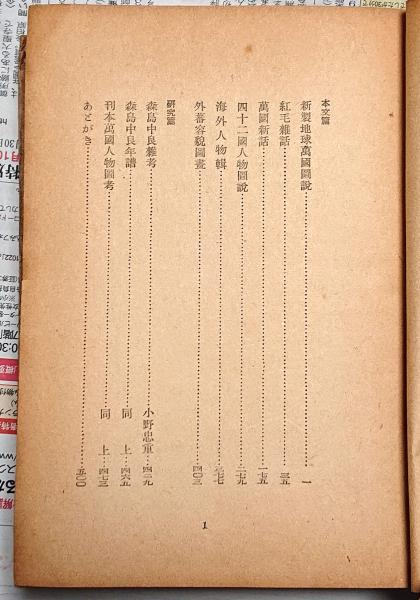 本文篇
新製地球萬國圖說……一
紅毛雜話……三五
萬國新話……一七五
四十二國人物圖說……二七九
海外人物輯……三一七
外蕃容貌圖畫……四〇三
研究篇
森島中良雜考……小野忠重……四二九
森島中良年譜……同上……四六五
刊本萬國人物圖考……同上……四七三
あとがき……五〇〇
1